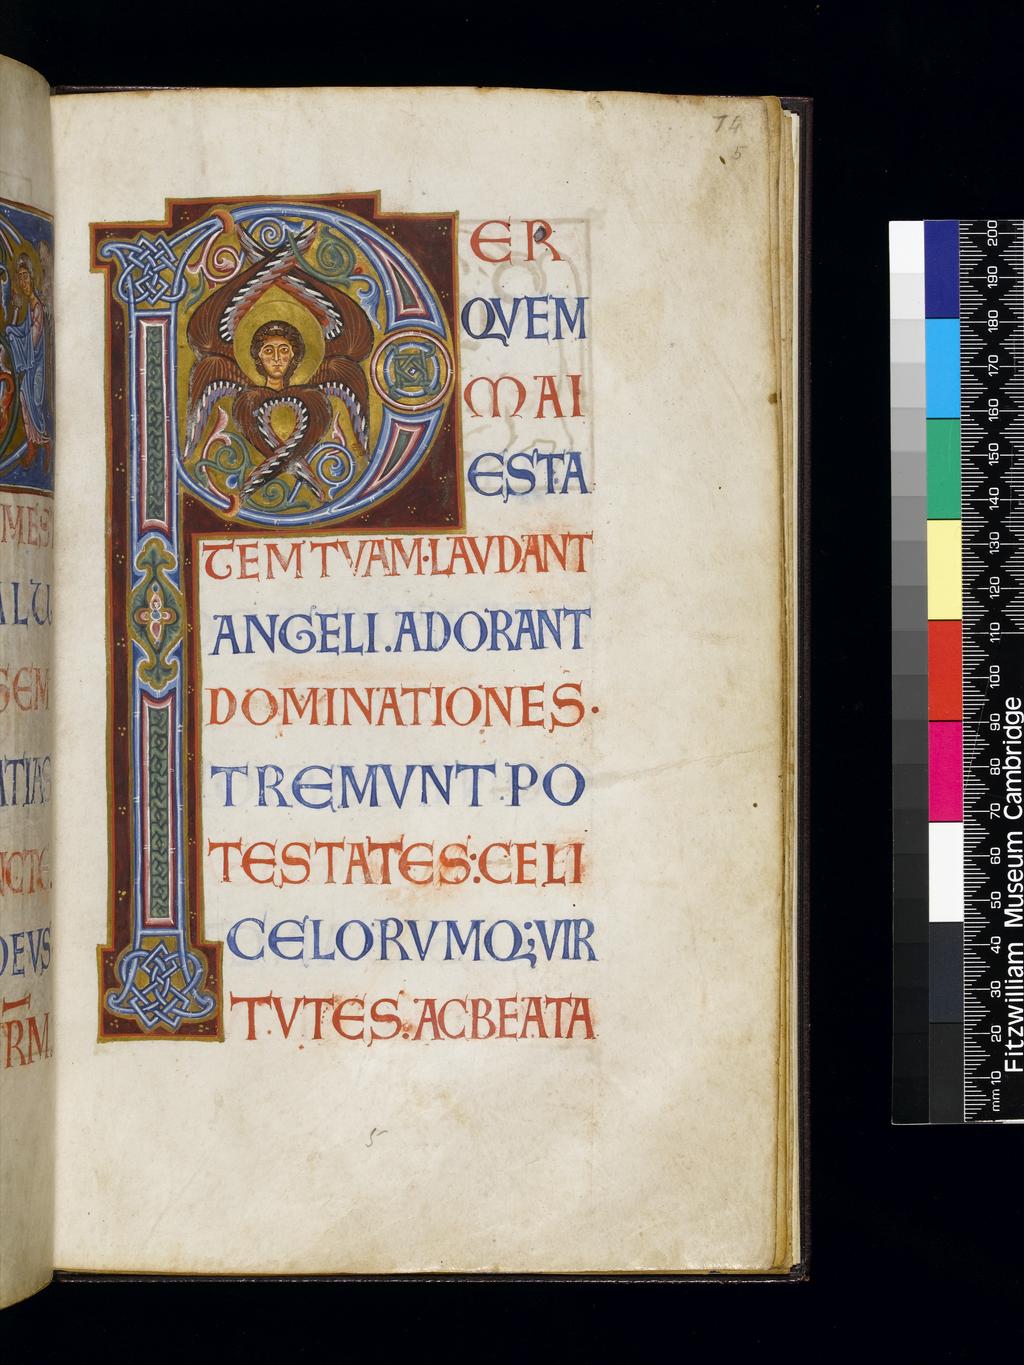 74
5
PER
QVEM
MAI
ESTA
TEM TVAM·LAVDANT
ANGELI.ADORANT
DOMINATIONES·
TREMVNT.PO
TESTATES:CELI
CELORVMQ;VIR
TVTES.ACBEATA
5
MES
ALU
GEM
ATIAS
DEVS
RM
200
190
180
170
160
150
140
130
120
110
100
90
80
70
60
50
40
30
20
mm 10
Fitzwilliam Museum Cambridge